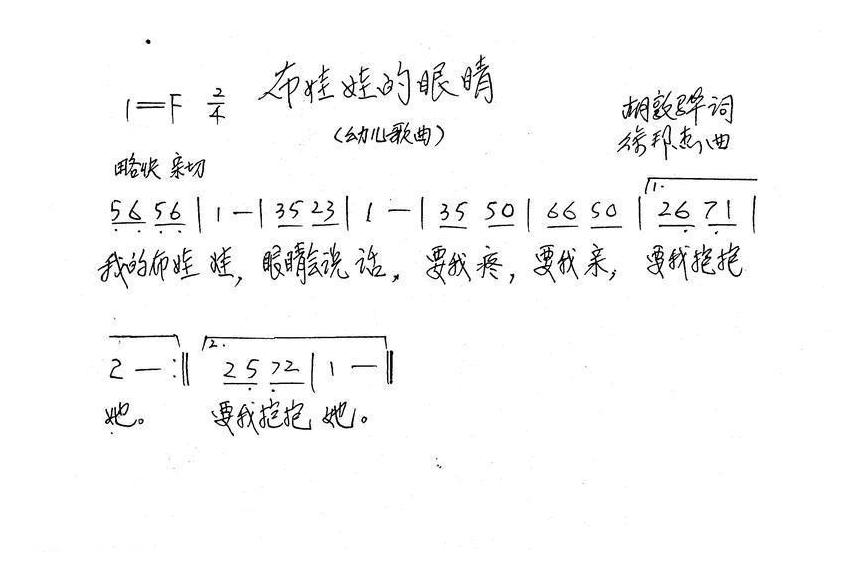 布娃娃的眼睛
1=F 2/4
(幼儿歌曲)
胡敦骅词
徐邦杰曲
略快 亲切
56 56 | 1 — | 35 23 | 1 — | 35 50 | 66 50 | 1. 26 71 |
我的布娃娃，眼睛会说话，要我疼，要我亲，要我抱抱
2 — :‖ 2. 25 72 | 1 — ‖
她。 要我抱抱她。